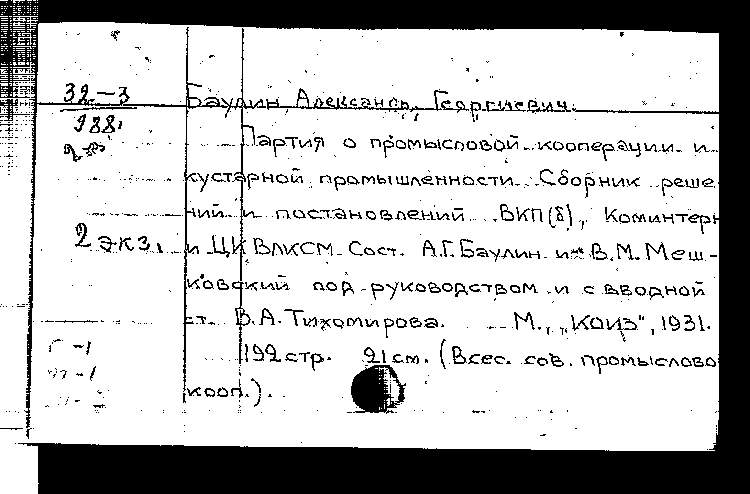 32-3
Баулин, Александр, Георгиевич.
988.
Партия о промысловой кооперации и
кустарной промышленности. Сборник реше-
ний и постановлений ВКП(б), Коминтерн
2 экз.
и ЦК ВЛКСМ. Сост. А.Г. Баулин и В.М. Меш-
ковский под руководством и с вводной
ст. В.А. Тихомирова. М., „КОИЗ", 1931.
192 стр. 21 см. (Всес. сов. промыслово
кооп.).